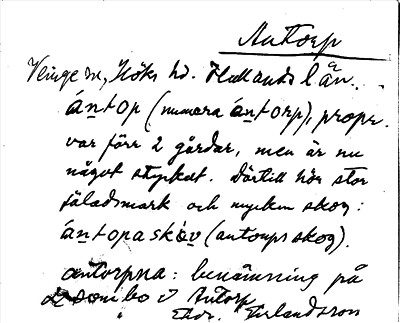 Antorp
Veinge sn, Höks hd. Hallands län.
ántop (numera ántorp), propr.
var förr 2 gårdar, men är nu
något styckat. Därtill hör stor
fäladsmark och mycken skog:
ántopaskòv (antorps skog).
antorpna: benämning på
de som bo i Antorp
Thor. Erlandsson